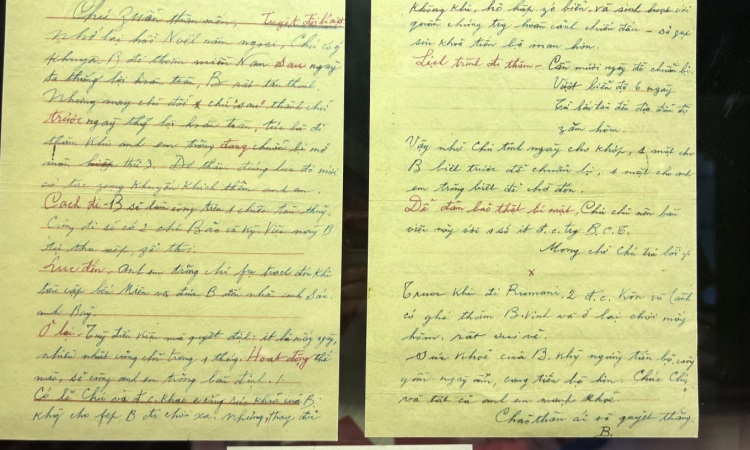 Chú Zuẩn thân mến, Tuyệt đối bí mật
Nhớ lại hồi Noël năm ngoái, Chú có ý
khuyên B đi thăm miền Nam sau ngày
ta thắng lợi hoàn toàn, B rất tán thành.
Nhưng nay chỉ đổi chữ "sau" thành chữ
trước ngày thắng lợi hoàn toàn, tức là đi
thăm khi anh em trong đang chuẩn bị mở
màn hiệp thứ 3. Đi thăm đúng lúc đó mới
có tác zụng khuyến khích thêm anh em.
Cách đi - B sẽ làm công trên 1 chiếc tàu thủy.
Cùng đi sẽ có 2 chú Bảo và Kỳ. Việc này B
tự thu xếp zễ thôi.
Lúc đến - Anh em trong chỉ fụ trách đón khi
tàu cập bến Miên và đưa B đến nhà anh Sáu,
anh Bảy.
Ở lại - Tùy điều kiện mà quyết định: ít là mấy ngày,
nhiều nhất cũng chỉ trong 1 tháng. Hoạt động thế
nào, sẽ cùng anh em trong bàn định.
Có lẽ Chú và đ.c. khác e rằng sức khỏe của B,
không cho fép B đi chơi xa. Nhưng, thay đổi
không khí, hô hấp gió biển, và sinh hoạt với
quần chúng trg hoàn cảnh chiến đấu - sẽ giúp
sức khỏe tiến bộ mau hơn.
Lịch trình đi thăm - Cần mươi ngày để chuẩn bị.
Vượt biển độ 6 ngày.
Trở lại tối đa địa điểm để
zấn hôm.
Vậy nhờ Chú tính ngày cho khớp, 1 mặt cho
B biết trước để chuẩn bị, 1 mặt cho anh
em trong biết để chờ đón.
Để đảm bảo thật bí mật, Chú chỉ nên bàn
việc này với 1 số ít đ.c. trg B.C.T.
Mong chờ Chú trả lời
x
Trước khi đi Rumani, 2 đ.c. Kôn và Lành
có ghé thăm B. Vinh và ở lại chơi mấy
hôm. Rất vui vẻ.
Sức khỏe của B. không ngừng tiến bộ, càng
gần ngày nắn, càng tiến bộ hơn. Chúc Chú
và tất cả anh em mạnh khỏe.
Chào thân ái và quyết thắng
B.